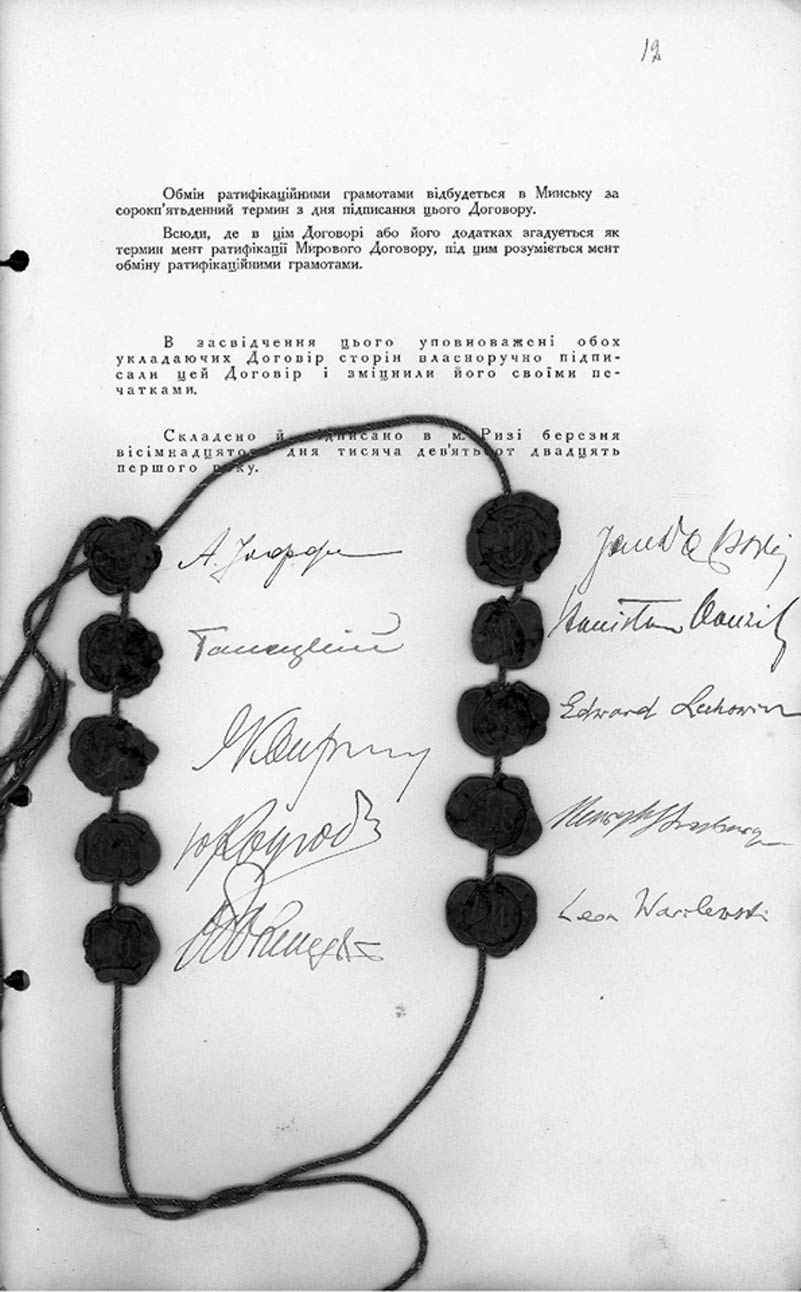 12
Обмін ратифікаційними грамотами відбудеться в Минську за
сорокп'ятьденний термин з дня підписання цього Договору.
Всюди, де в цім Договорі або його додатках згадується як
термин мент ратифікації Мирового Договору, під цим розуміється мент
обміну ратифікаційними грамотами.
В засвідчення цього уповноважені обох
укладаючих Договір сторін власноручно підпи-
сали цей Договір і зміцнили його своїми пе-
чатками.
Складено й підписано в м. Ризі березня
вісімнадцятого дня тисяча дев'ятьсот двадцять
першого року.
А. Иоффе
Ганецкий
Edward Lechowicz
Leon Wasilewski